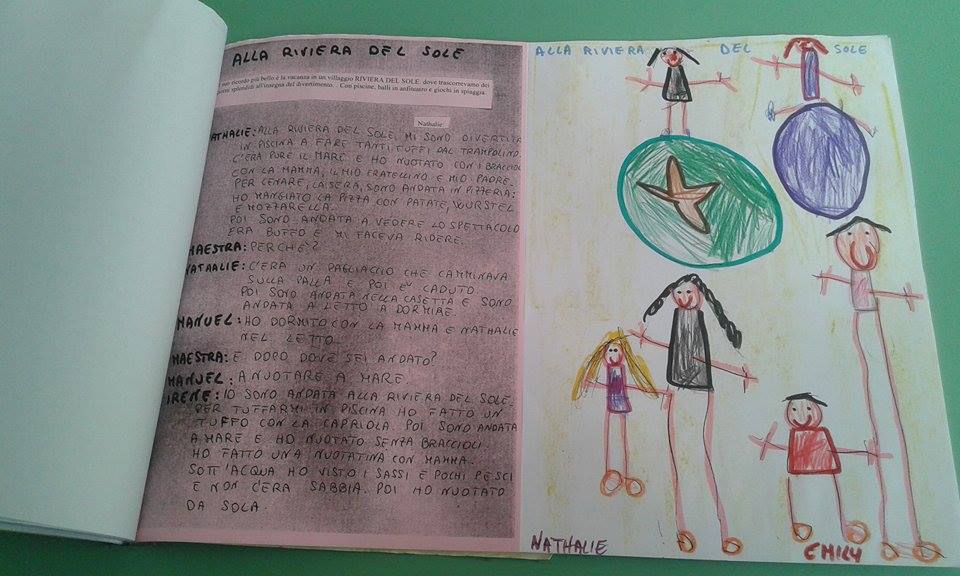 ALLA RIVIERA DEL SOLE
ricordo più bello è la vacanza in un villaggio RIVIERA DEL SOLE, dove trascorrevamo dei
splendidi all'insegna del divertimento. Con piscine, balli in anfiteatro e giochi in spiaggia.
Nathalie
NATHALIE: ALLA RIVIERA DEL SOLE, MI SONO DIVERTITA
IN PISCINA A FARE TANTI TUFFI DAL TRAMPOLINO.
C'ERA PURE IL MARE E HO NUOTATO CON I BRACCIOLI
CON LA MAMMA, IL MIO FRATELLINO E MIO PADRE.
PER CENARE, LA SERA, SONO ANDATA IN PIZZERIA:
HO MANGIATO LA PIZZA CON PATATE, WURSTEL
E MOZZARELLA.
POI SONO ANDATA A VEDERE LO SPETTACOLO
ERA BUFFO E MI FACEVA RIDERE.
MAESTRA: PERCHE'?
NATAALIE: C'ERA UN PAGLIACCIO CHE CAMMINAVA
SULLA PALLA E POI E' CADUTO
POI SONO ANDATA NELLA CASETTA E SONO
ANDATA A LETTO A DORMIRE.
MANUEL: HO DORMITO CON LA MAMMA E NATHALIE
NEL LETTO.
MAESTRA: E DOPO DOVE SEI ANDATO?
MANUEL: A NUOTARE A MARE.
IRENE: IO SONO ANDATA ALLA RIVIERA DEL SOLE.
PER TUFFARMI IN PISCINA HO FATTO UN
TUFFO CON LA CAPRIOLA. POI SONO ANDATA
A MARE E HO NUOTATO SENZA BRACCIOLI
HO FATTO UNA NUOTATINA CON MAMMA.
SOTT'ACQUA HO VISTO I SASSI E POCHI PESCI
E NON C'ERA SABBIA. POI HO NUOTATO
DA SOLA.
ALLA RIVIERA DEL SOLE
NATHALIE
EMILY